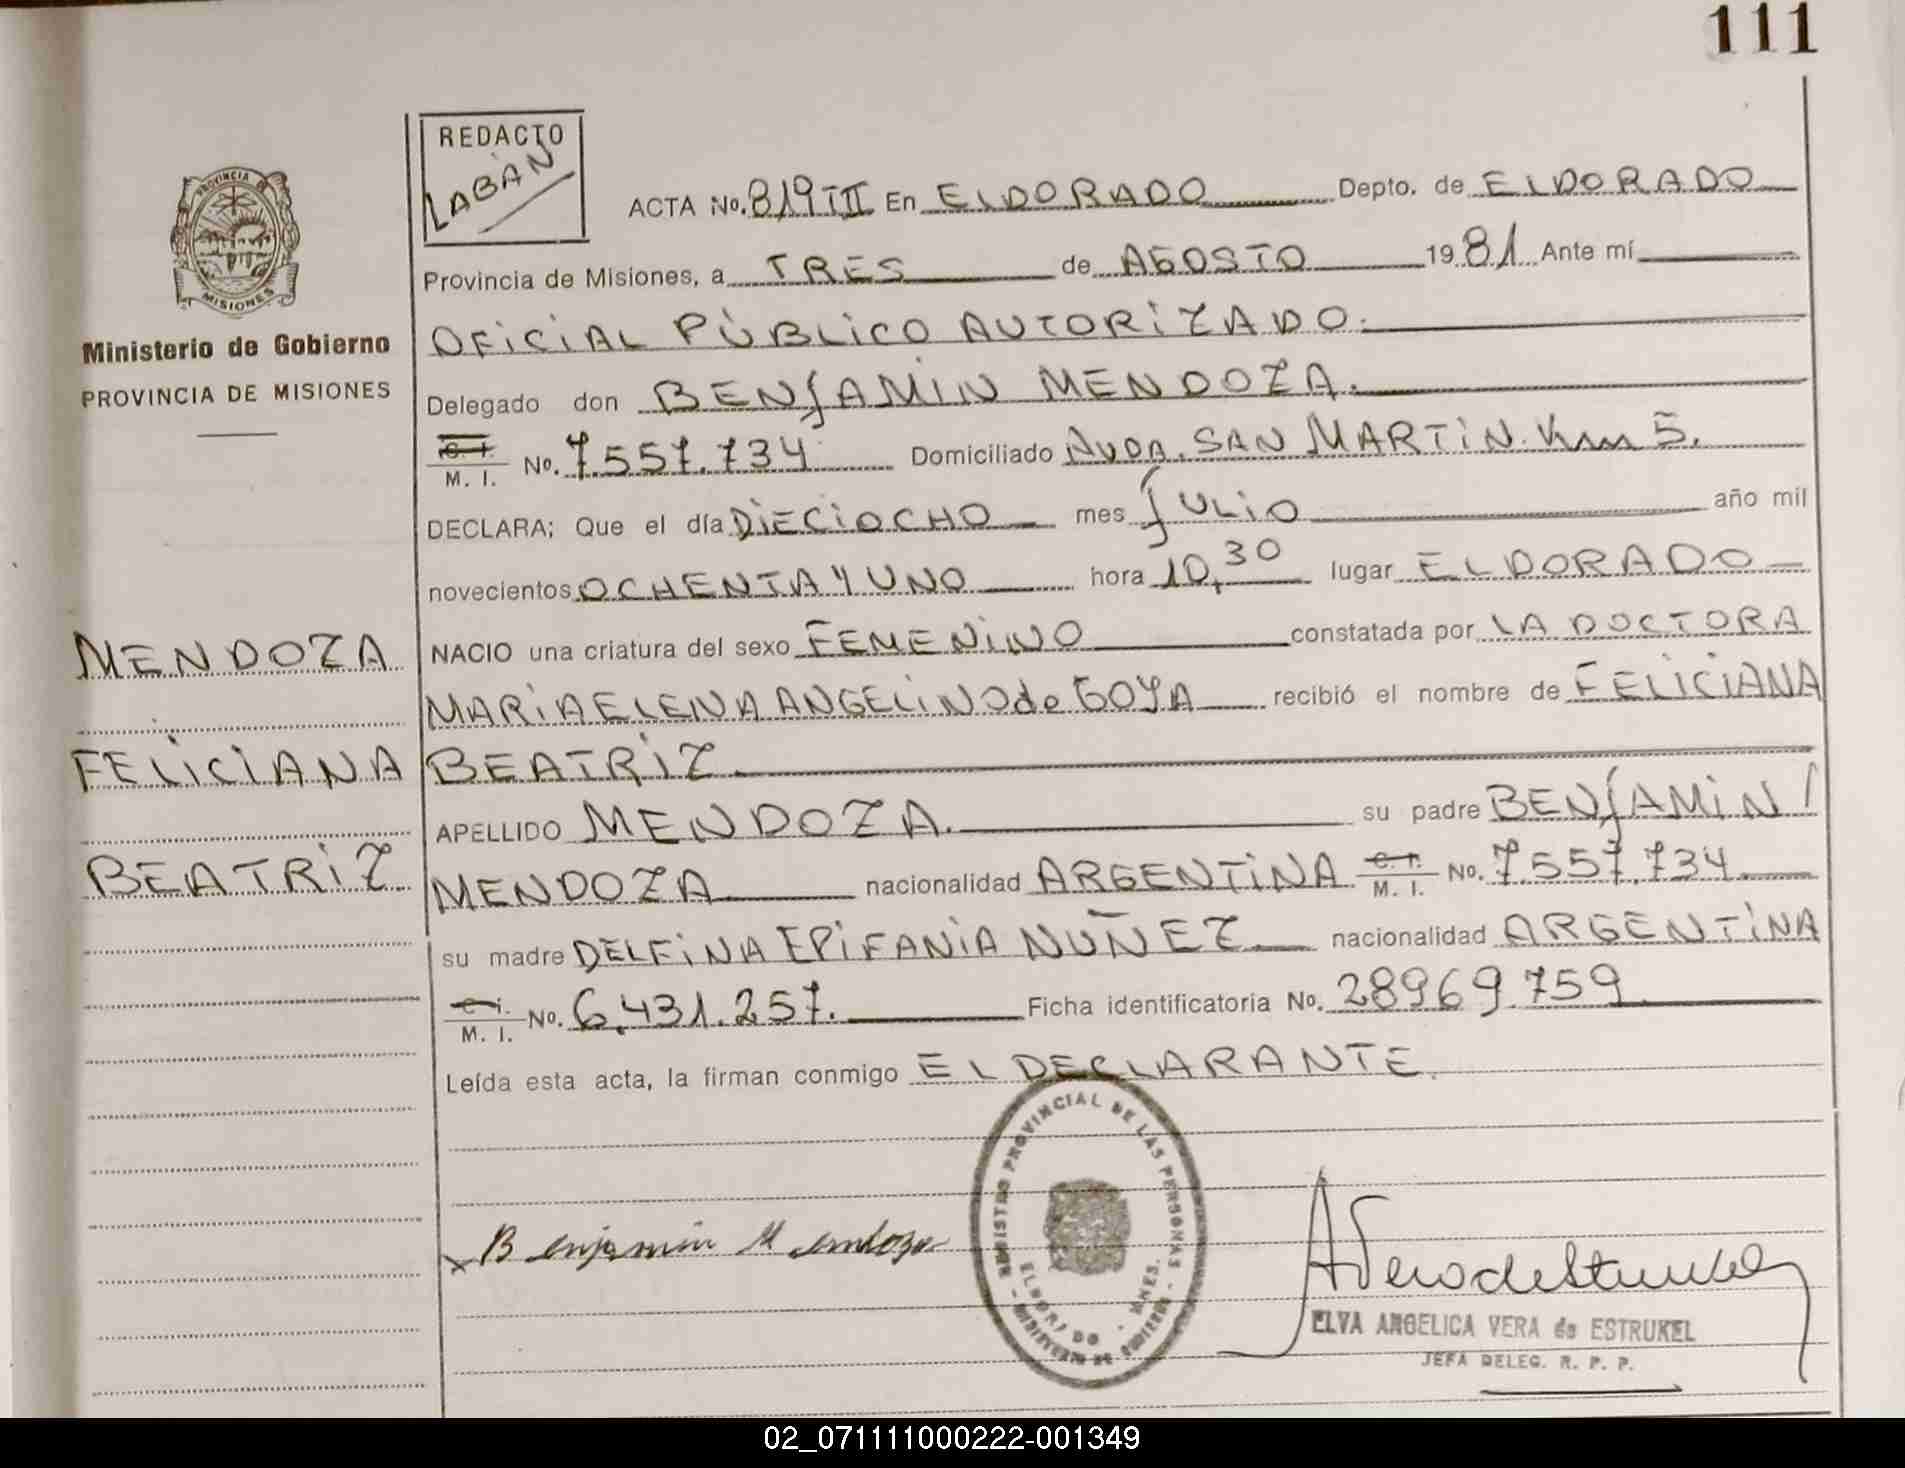 111
REDACTO
LABAN
PROVINCIA DE
MISIONES
Ministerio de Gobierno
PROVINCIA DE MISIONES
ACTA No. 819 TII En ELDORADO Depto. de ELDORADO
Provincia de Misiones, a TRES de AGOSTO 1981 Ante mí
OFICIAL PÚBLICO AUTORIZADO.
Delegado don BENJAMIN MENDOZA.
C. I.
M. I. No. 7.557.734 Domiciliado AVDA. SAN MARTIN. Km 5.
DECLARA; Que el día DIECIOCHO mes JULIO año mil
novecientos OCHENTA Y UNO hora 10,30 lugar ELDORADO
NACIO una criatura del sexo FEMENINO constatada por LA DOCTORA
MARIA ELENA ANGELINO de GOYA recibió el nombre de FELICIANA
BEATRIZ.
APELLIDO MENDOZA. su padre BENJAMIN
MENDOZA nacionalidad ARGENTINA C. I. M. I. No. 7.557.734
su madre DELFINA EPIFANIA NUÑEZ nacionalidad ARGENTINA
C. I.
M. I. No. 6.431.257. Ficha identificatoria No. 28969.759
Leída esta acta, la firman conmigo EL DECLARANTE.
MENDOZA
FELICIANA
BEATRIZ
x Benjamin Mendoza
REGISTRO PROVINCIAL DE LAS PERSONAS
ELDORADO - MNES.
MINISTERIO DE GOBIERNO
ELVA ANGELICA VERA de ESTRUKEL
JEFA DELEG. R. P. P.
02_071111000222-001349